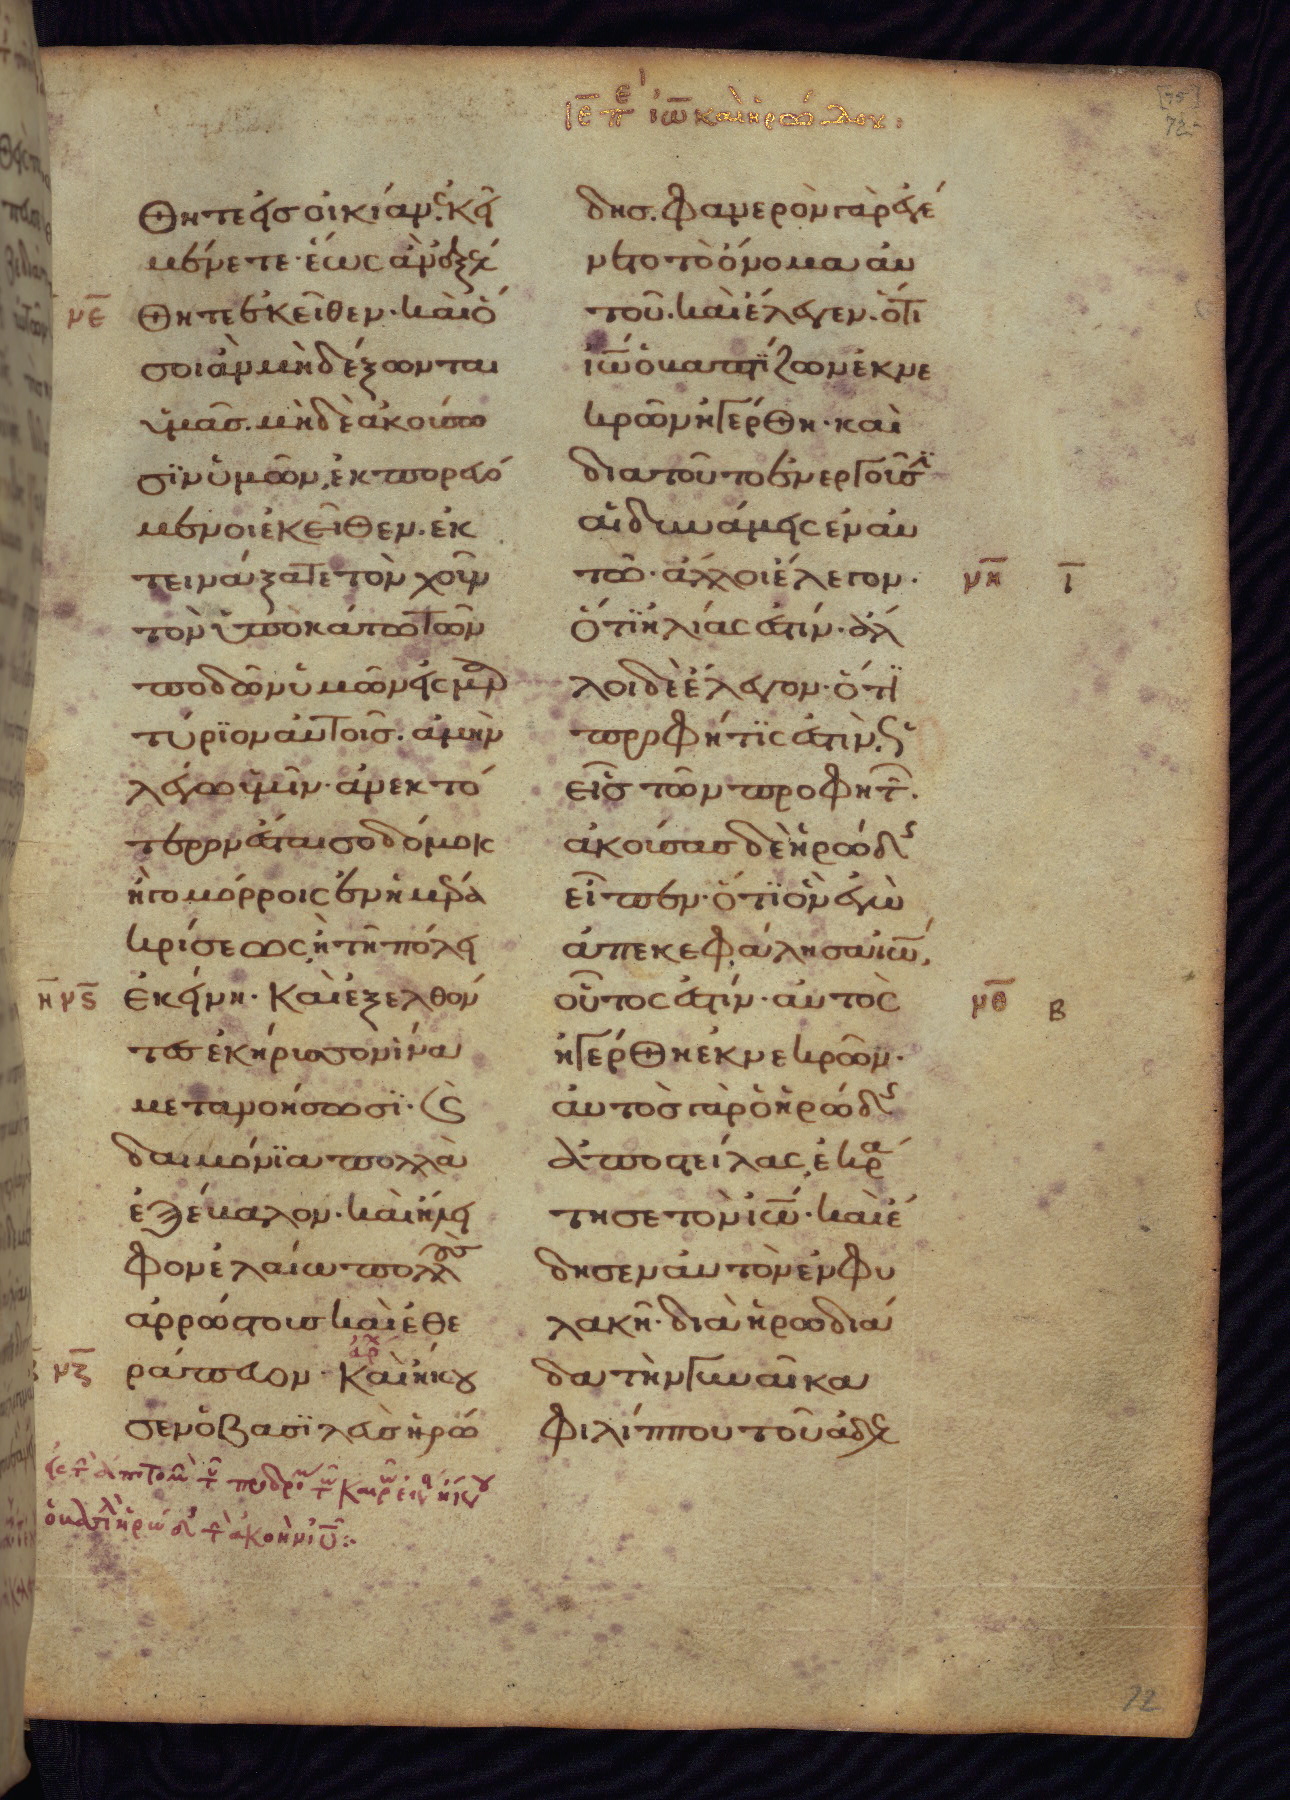 ιε πε ιω και ηρωδου.
θητε εις οικίαν. ἐκεῖ
μένετε· ἕως ἂν ἐξέλ
νε
θητε ἐκεῖθεν· καὶ ὅ
σοι ἂν μὴ δέξωνται
ὑμᾶσ. μὴδὲ ἀκούσω
σϊν ὑμῶν, ἐκπορευό
μενοι ἐκεῖθεν. ἐκ
τεινάξατε τὸν χοῦν
τὸν ὑποκάτω τῶν
ποδῶν ὑμῶν εἰς μαρ
τύρϊον αὐτοῖσ. ἀμὴν
λέγω ὑμῖν· ἀνεκτό
τερον ἔσται σοδόμοις
ἢ γομόρροις ἐν ἡμέρα
κρίσεως, ἢ τῆ πόλει
η νς
ἐκείνη· Καὶ ἐξελθόν
τεσ ἐκήρυσσον ἵνα
μετανοήσωσϊ· καὶ
δαιμόνϊα πολλὰ
ἐξέβαλον· καὶ ἤλει
φον ἐλαίω πολλοὺσ
ἀρρώστουσ καὶ ἐθε
νζ
ράπευον· ἀρχ Καὶ ἤκου
σεν ὁ βασϊλεὺσ ἡρώ
δησ. φανερὸν γὰρ ἐγέ
νετο τὸ ὄνομα αὐ
τοῦ. καὶ ἔλεγεν. ὅτι
ἰω ὁ βαπτΐζων ἐκ νε
κρῶν ἠγέρθη· καὶ
διατοῦτο ἐνεργοῦσϊ
αἱ δυνάμεις ἐν αὐ
τῶ· ἄλλοι ἔλεγον·
νη ι
ὅτϊ ἡλίας ἐστίν· ἄλ
λοι δὲ ἔλεγον· ὅτϊ
προφήτϊς ἐστὶν, ὡς
εἷσ τῶν προφητῶν.
ἀκούσασ δὲ ἡρώδης
εἶπεν· ὅτϊ ὃν ἐγὼ
ἀπεκεφάλησα ἰω,
οὗτος ἐστίν· αὐτὸς
νθ β
ἠγέρθη ἐκ νεκρῶν·
αὐτὸσ γὰρ ὁ ἡρώδης
ἀποστείλας, ἐκρά
τησε τὸν ἰω· καὶ ἔ
δησεν αὐτὸν ἐν φυ
λακῆ· διὰ ἡρωδιά
δα τὴν γυναῖκα
φιλίππου τοῦ ἀδελ